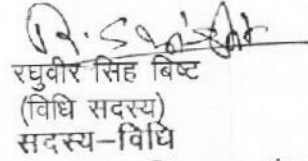 रघुवीर सिंह बिष्ट
(विधि सदस्य)
सदस्य-विधि